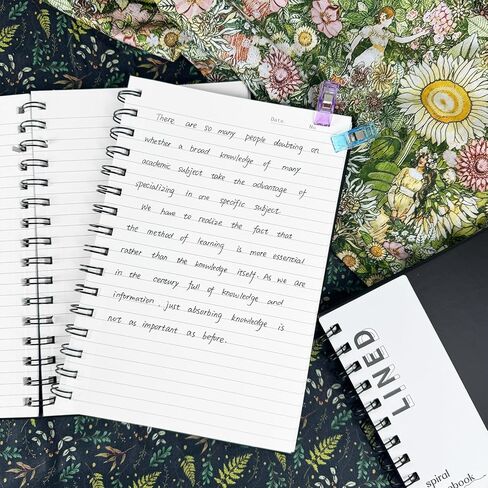 Date
No
There are so many people doubting on
whether a broad knowledge of many
academic subject take the advantage of
specializing in one specific subject.
We have to realize the fact that
the method of learning is more essential
rather than the konwledge itself. As we are
in the century full of knowledge and
information, just absorbing knowledge is
not as important as before.
LINED
spiral